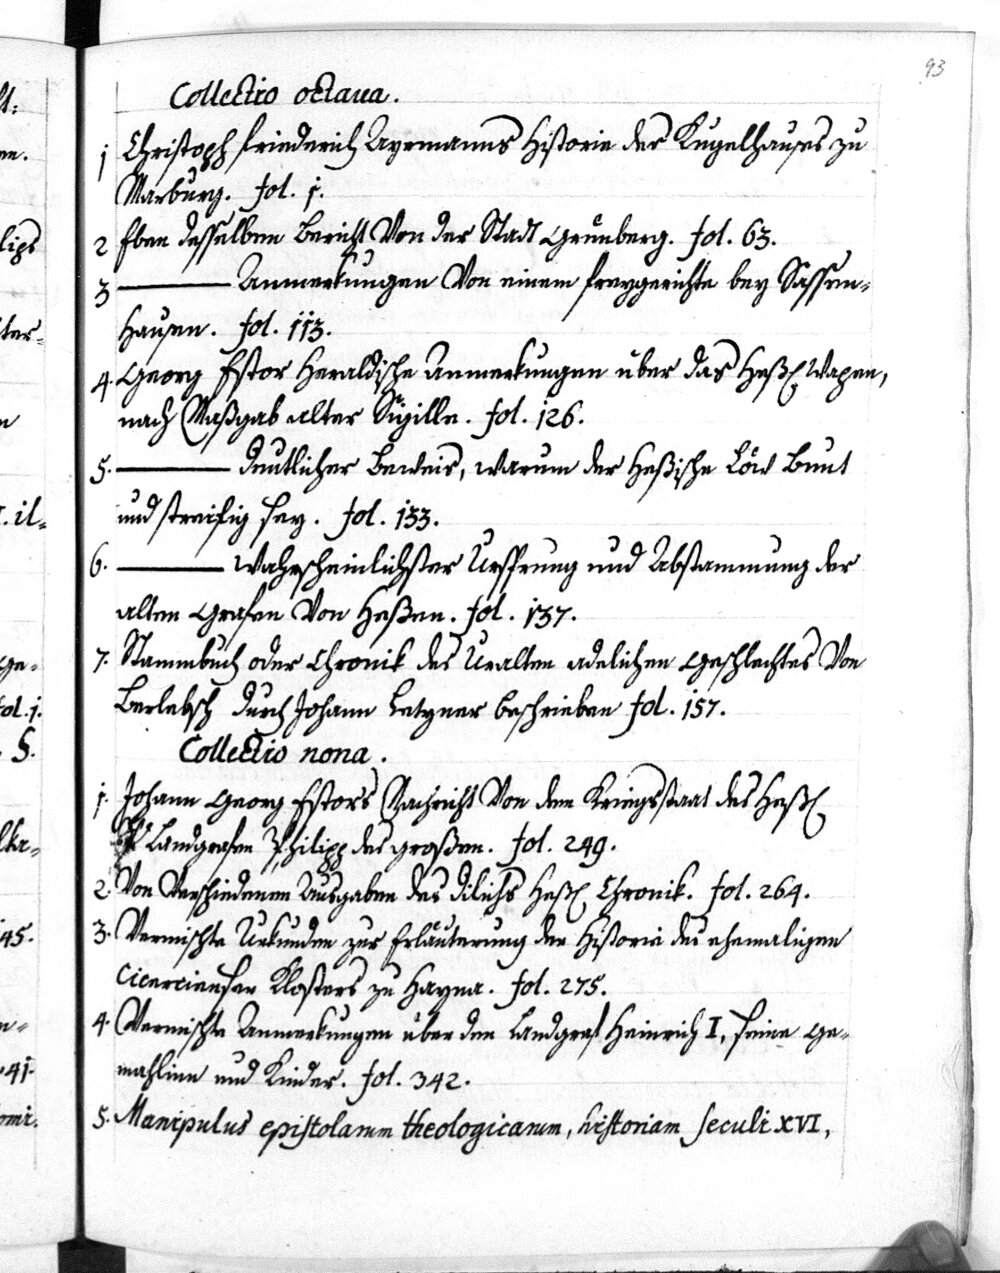 93
Collectio octava.
1 Christoph Friederich Ayrmanns Historie des Kugelhauses zu
Marburg. fol. 1.
2 Eben desselben Bericht Von der Stadt Grünberg. fol. 63.
3 ——— Anmerkungen Von einem freygerichte bey Sassen-
hausen. fol. 113.
4. Georg Estor Heraldische Anmerkungen über das Heß. Wapen,
nach Maßgab alter Sigille. fol. 126.
5. ——— deutlicher Beweis, warum der Heßische Löw Bunt
und streifig sey. fol. 133.
6. ——— wahrscheinlichster Ursprung und Abstammung der
alten Grafen Von Heßen. fol. 137.
7. Stammbuch oder Chronik des Uralten adelichen Geschlechtes Von
Berlebsch durch Johann Letzner beschrieben fol. 157.
Collectio nona.
1. Johann Georg Estors Nachricht Von dem Kriegsstaat des Heß.
Landgrafen Philipp des großen. fol. 249.
2. Von Verschiedenen Ausgaben des Dilichs Heß. Chronik. fol. 264.
3. Vermischte Urkunden zur Erläuterung der Historie des ehemaligen
Cicercienser Klosters zu Hayna. fol. 275.
4. Vermischte Anmerkungen über den Landgraf Heinrich I, seine Ge-
mahlinn und Kinder. fol. 342.
5. Manipulus epistolarum theologicarum, historiam seculi XVI,